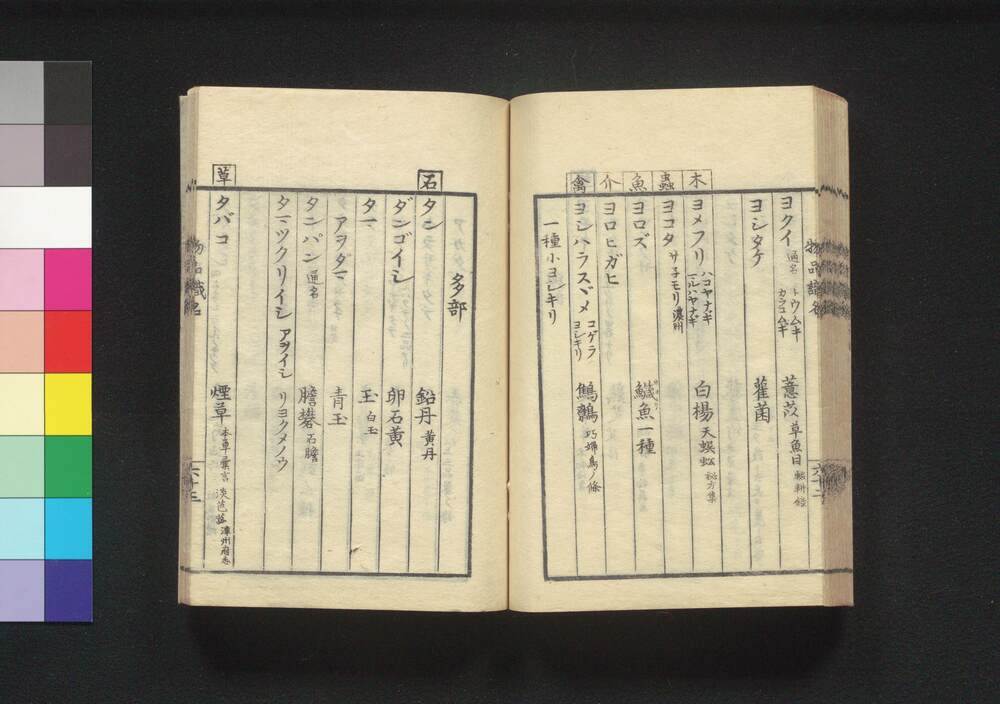 物品識名
ヨクイ 通名 トウムギ カラコムギ 薏苡 草魚目 輟耕錄
ヨシタケ 雚菌
木
ヨメフリ ハコヤナギ マルバヤナギ 白楊 天蜈蚣 秘方集
蟲
ヨコタ サ子モリ 濃州
魚
ヨロズ 鱵魚一種
介
ヨロヒガヒ
禽
ヨシハラスヾメ コゲラ ヨシキリ 鷦鷯 巧婦鳥ノ條
一種小ヨシキリ
六十二
多部
石
タン 鉛丹 黄丹
ダンゴイシ 卵石黄
タマ 玉 白玉
アヲダマ 青玉
タンパン 通名 膽礬 石膽
タマツクリイシ アヲイシ リヨクメノウ
草
タバコ 煙草 本草彙言 淡芭菰 漳州府志
物品識名
六十三